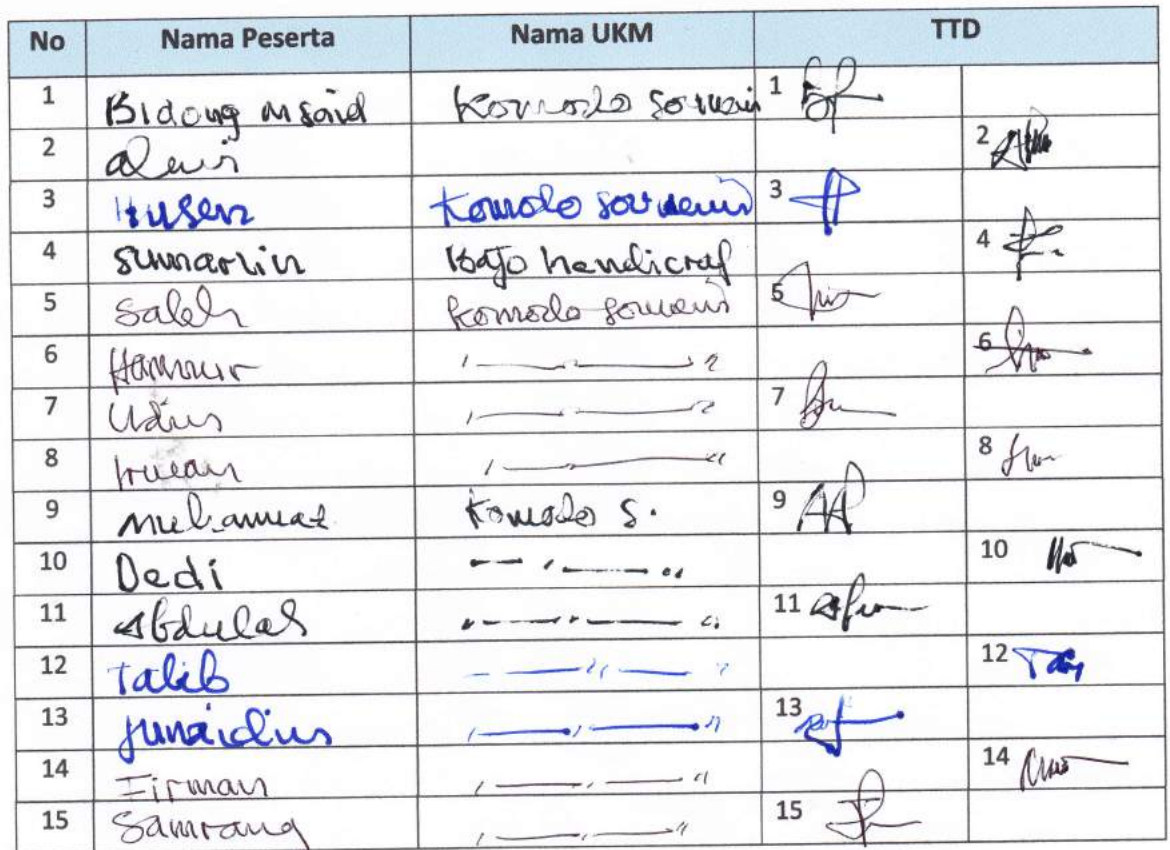 No Nama Peserta Nama UKM TTD
1 Bidong M Said Komodo Souvenir 1
2 2
3 Husen Komodo Souvenir 3
4 Sumarlin Bajo handicraf 4
5 Saleh Komodo Souvenir 5
6 6
7 Udin 7
8 Irwan 8
9 Muhammad Komodo S. 9
10 Dedi 10
11 Abdulah 11
12 Talib 12
13 Junaidin 13
14 Firman 14
15 Samrang 15